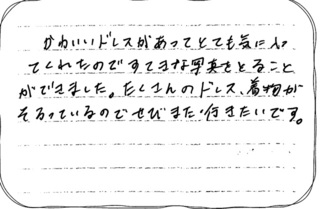 かわいいドレスがあってとても気に入っ
てくれたのですてきな写真をとること
ができました。たくさんのドレス、着物が
そろっているのでぜひまた行きたいです。